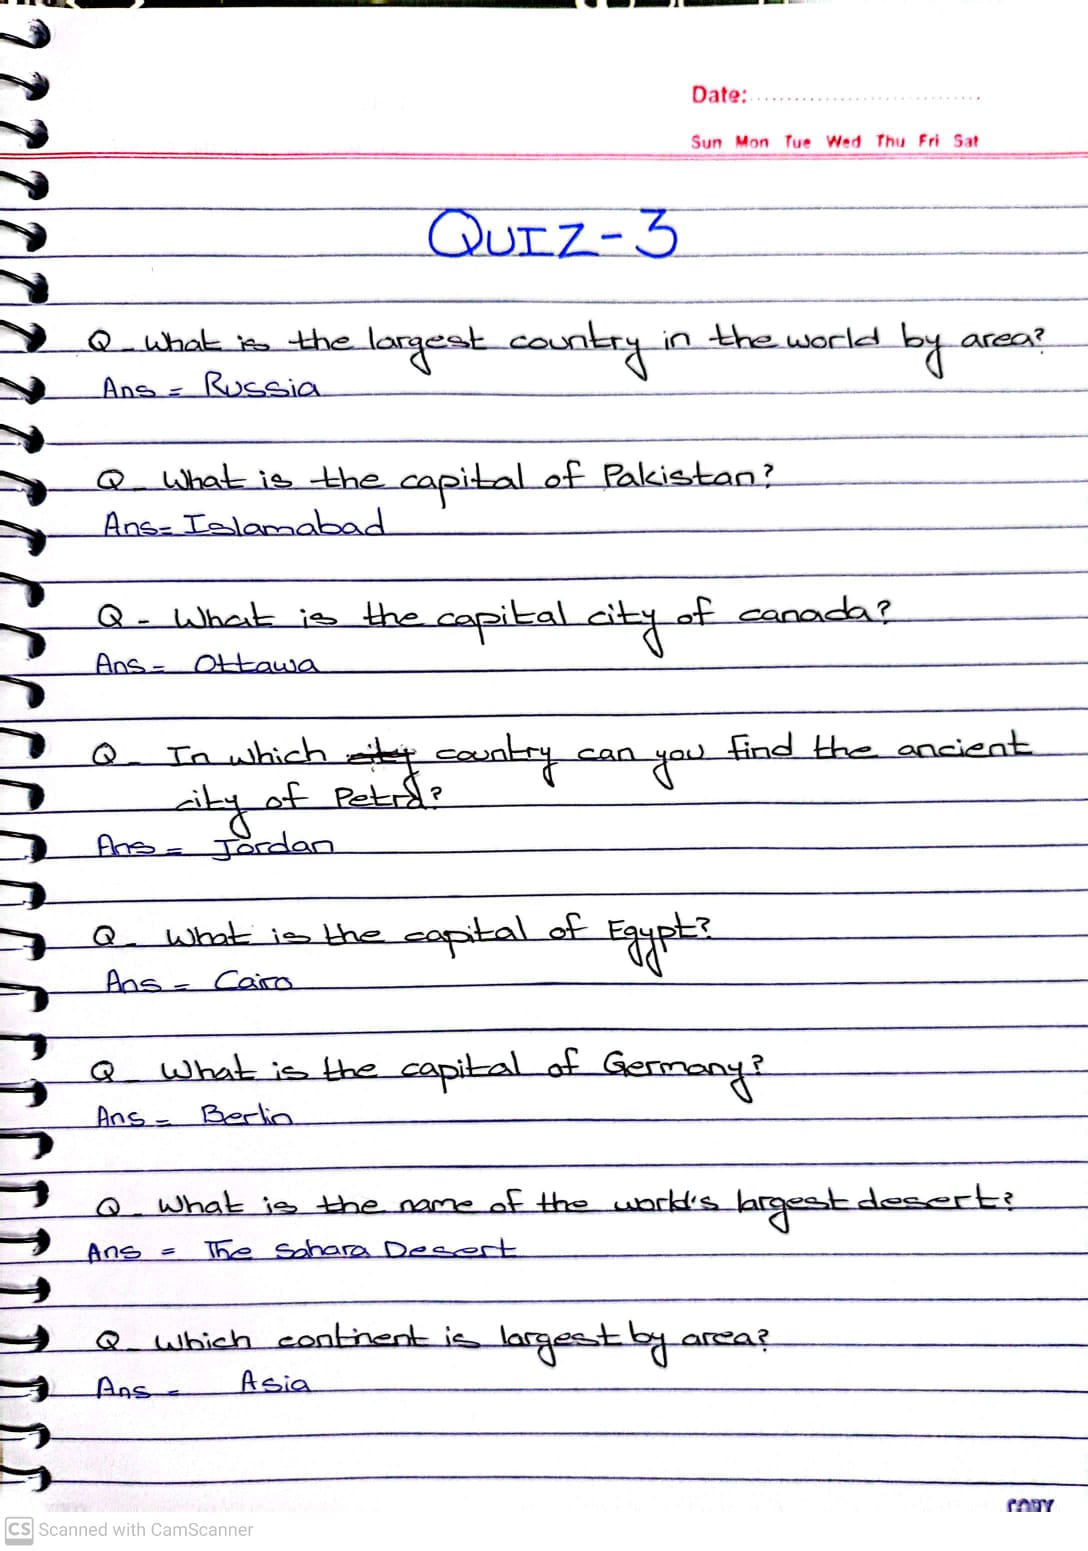 Date:
Sun Mon Tue Wed Thu Fri Sat
QUIZ-3
Q - What is the largest country in the world by area?
Ans = Russia
Q - What is the capital of Pakistan?
Ans = Islamabad
Q - What is the capital city of canada?
Ans = Ottawa
Q - In which city country can you find the ancient
city of Petra?
Ans = Jordan
Q - What is the capital of Egypt?
Ans = Cairo
Q - What is the capital of Germany?
Ans = Berlin
Q - What is the name of the world's largest desert?
Ans = The Sahara Desert
Q - Which continent is largest by area?
Ans = Asia
COPY
CS Scanned with CamScanner